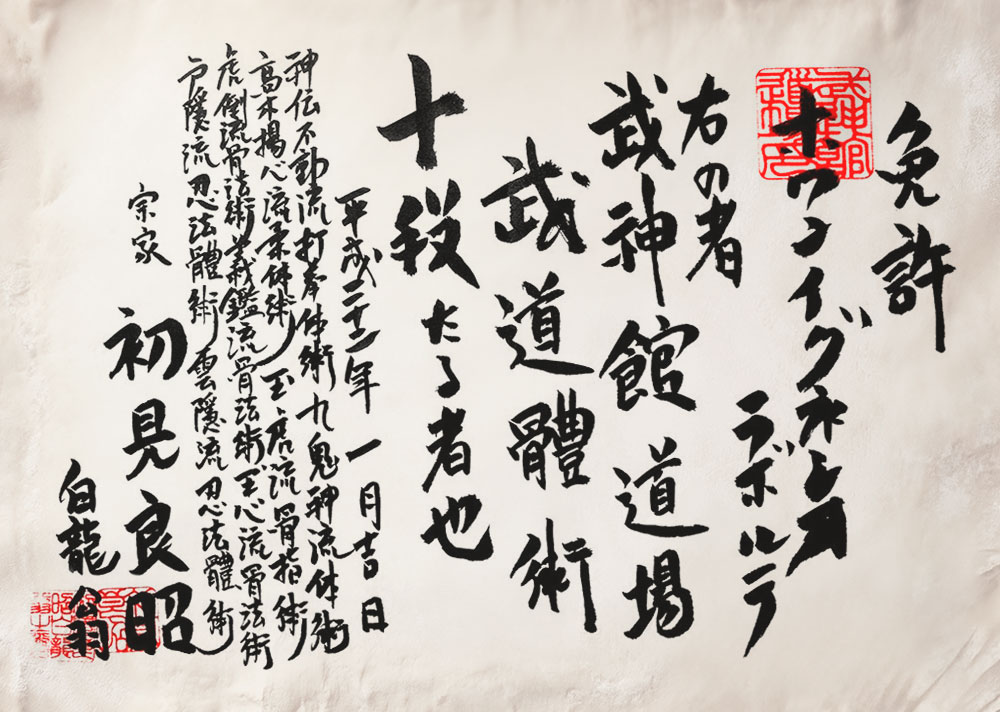 免許
ホワン イグネシオ
ラボルテ
右の者
武神館道場
武道體術
十段たる者也
平成二十二年一月吉日
神伝不動流打拳体術九鬼神流体術
高木揚心流柔体術玉虎流骨指術
虎倒流骨法術義鑑流骨法術玉心流骨法術
戸隠流忍法體術雲隠流忍法體術
宗家
初見良昭
白龍翁